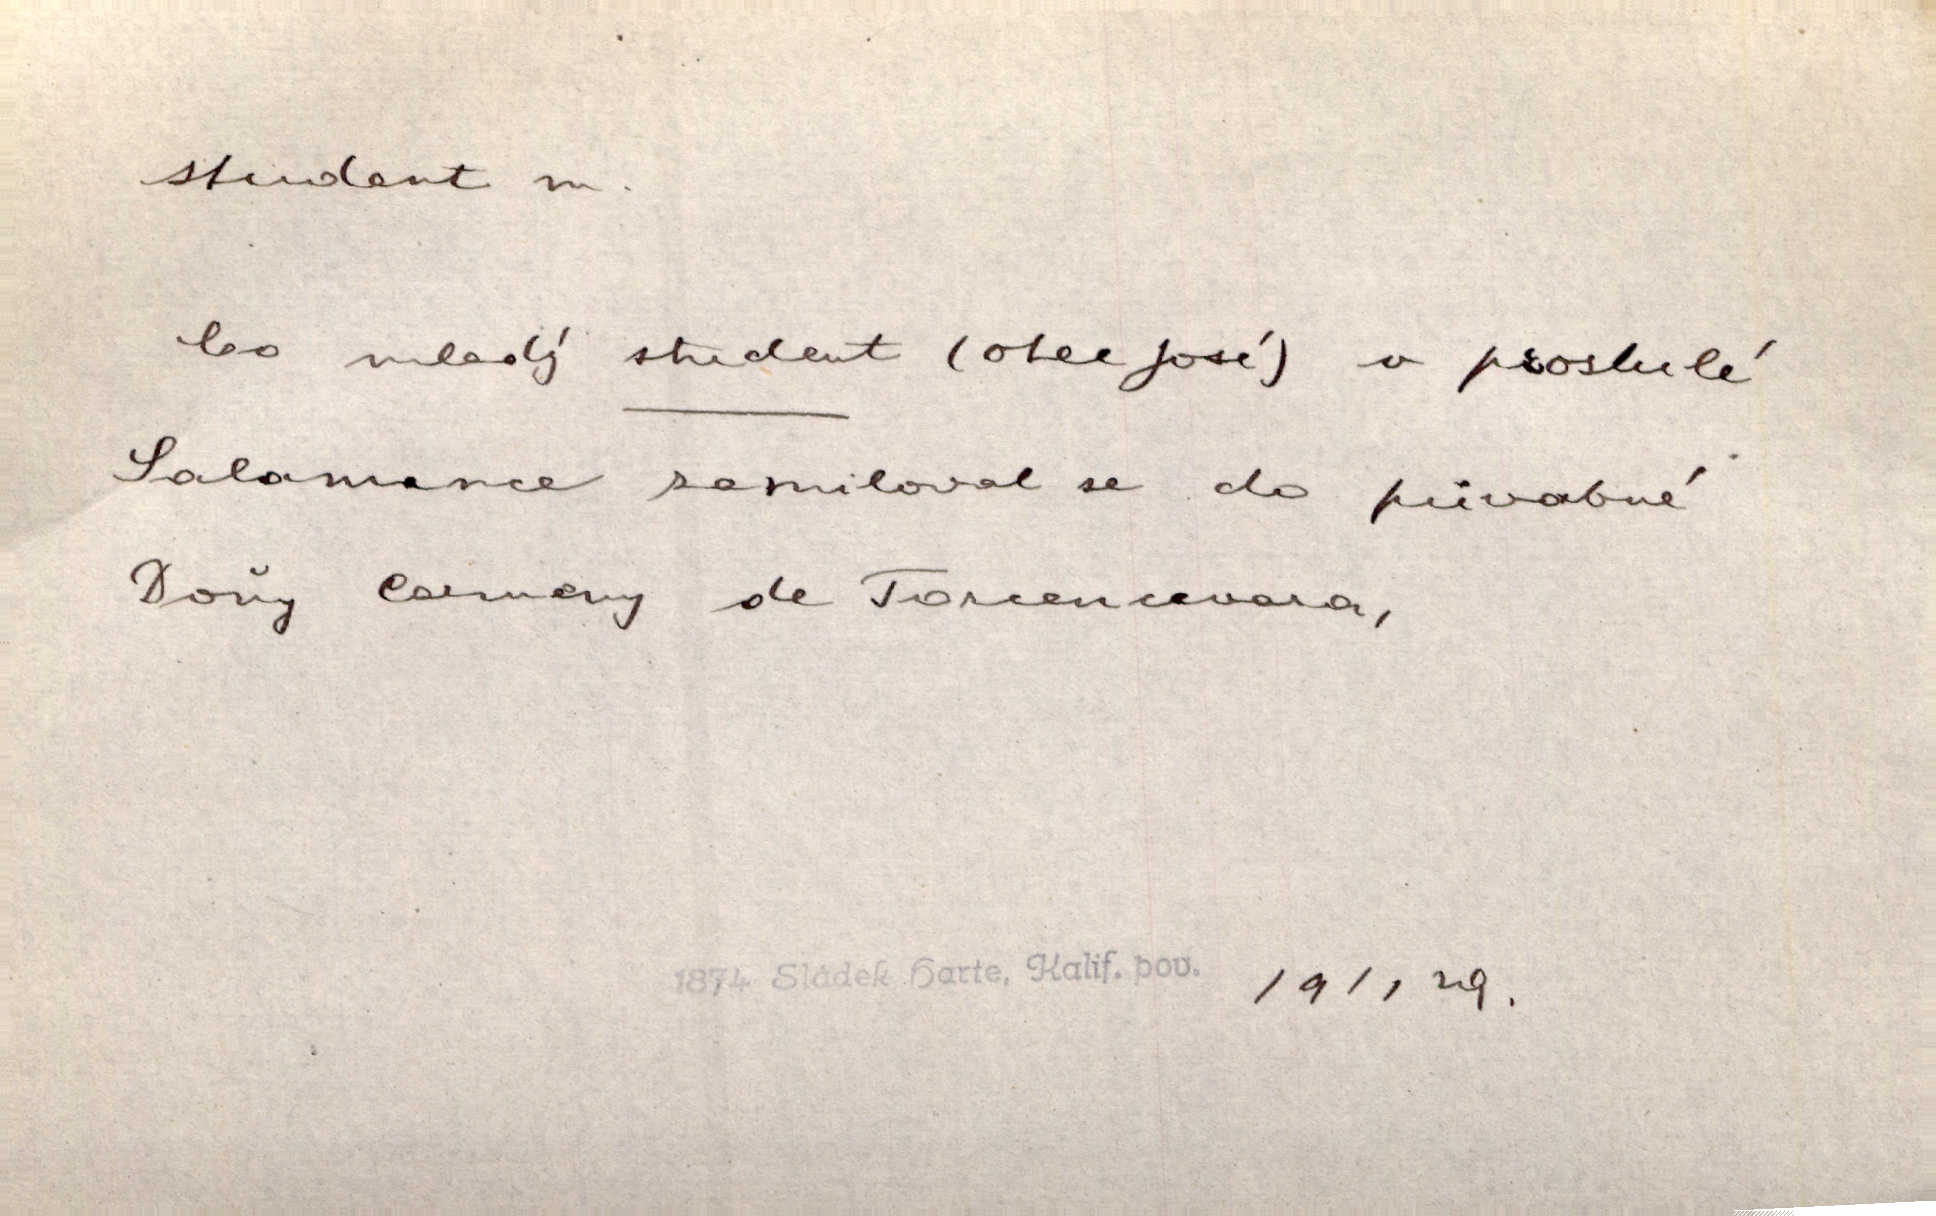 student m.
Co mladý student (otec José) v proslulé
Salamance zamiloval se do půvabné
Doňy Carmeny de Torcencevara,
1874 Sládek Harte, Kalif. pov. 191, 29.